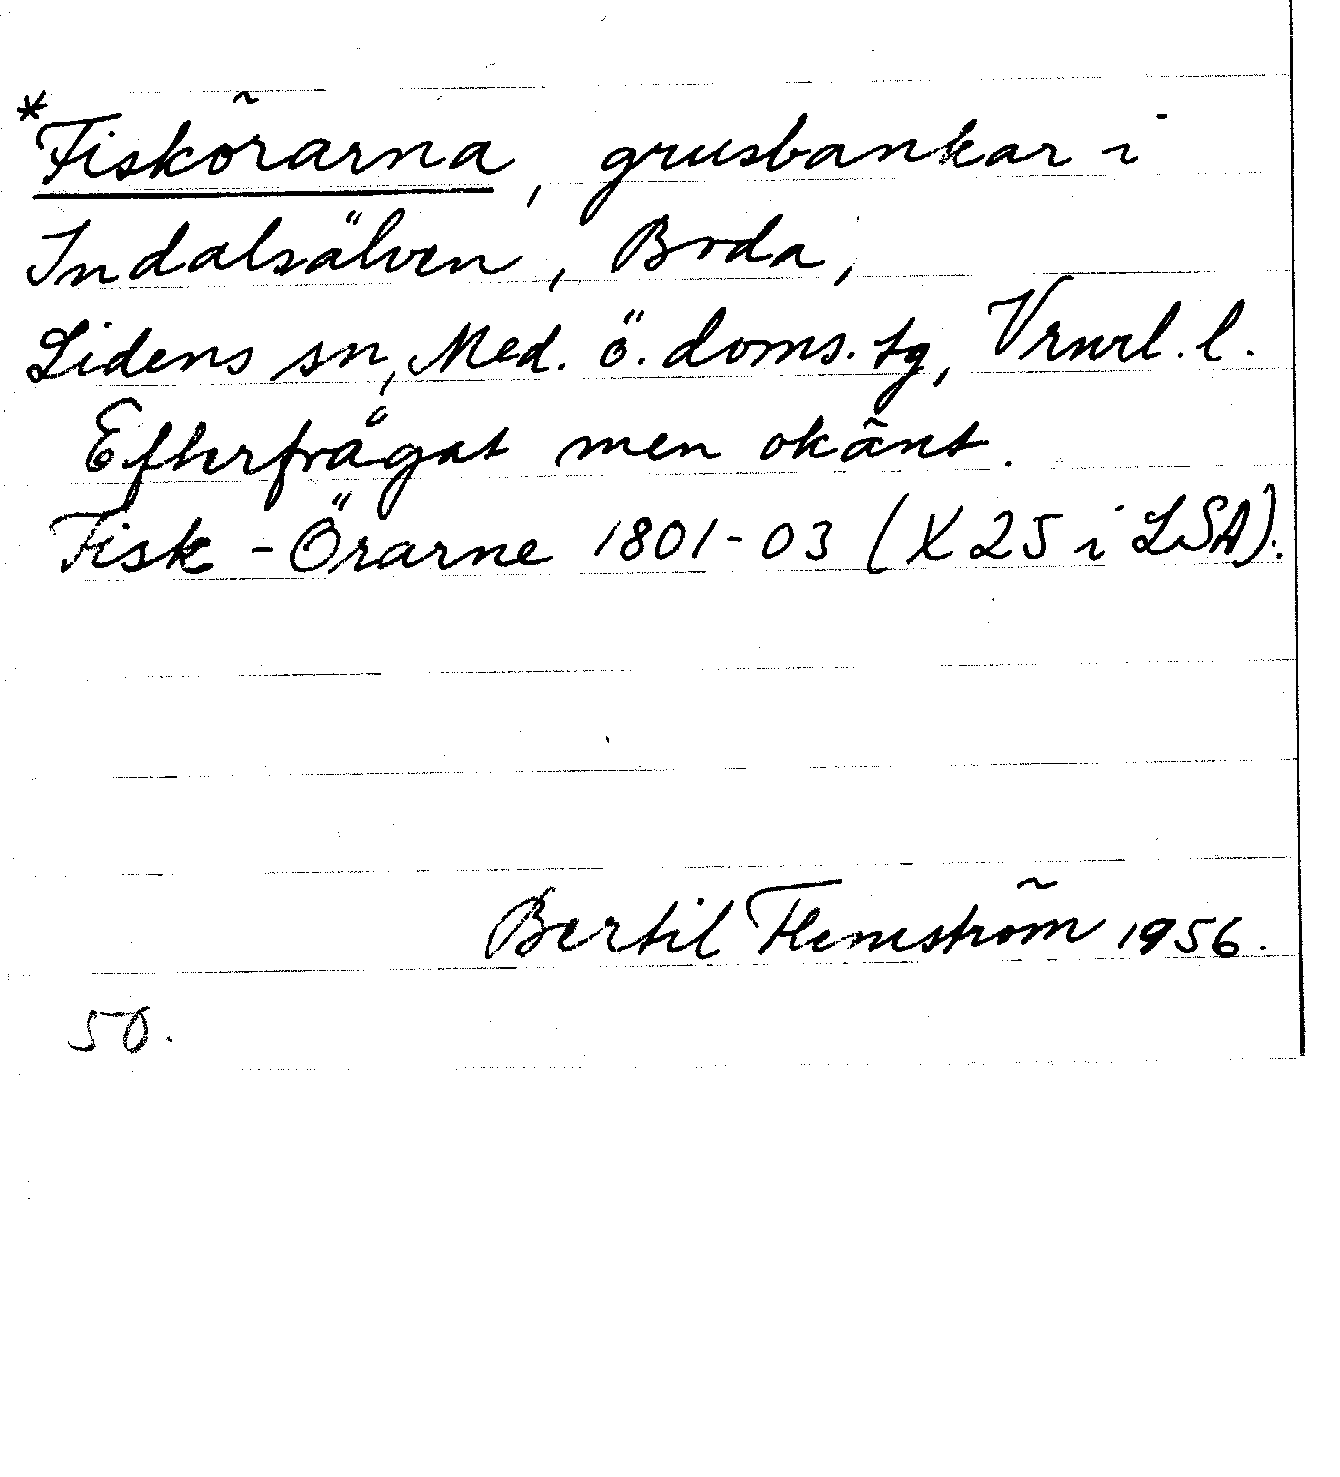 *Fiskörarna, grusbankar i
Indalsälven, Boda,
Lidens sn, Med. ö. doms. tg, Vrnrl. l.
Efterfrågat men okänt.
Fisk-Örarne 1801-03 (X 25 i LSA).
Bertil Flemström 1956.
50.